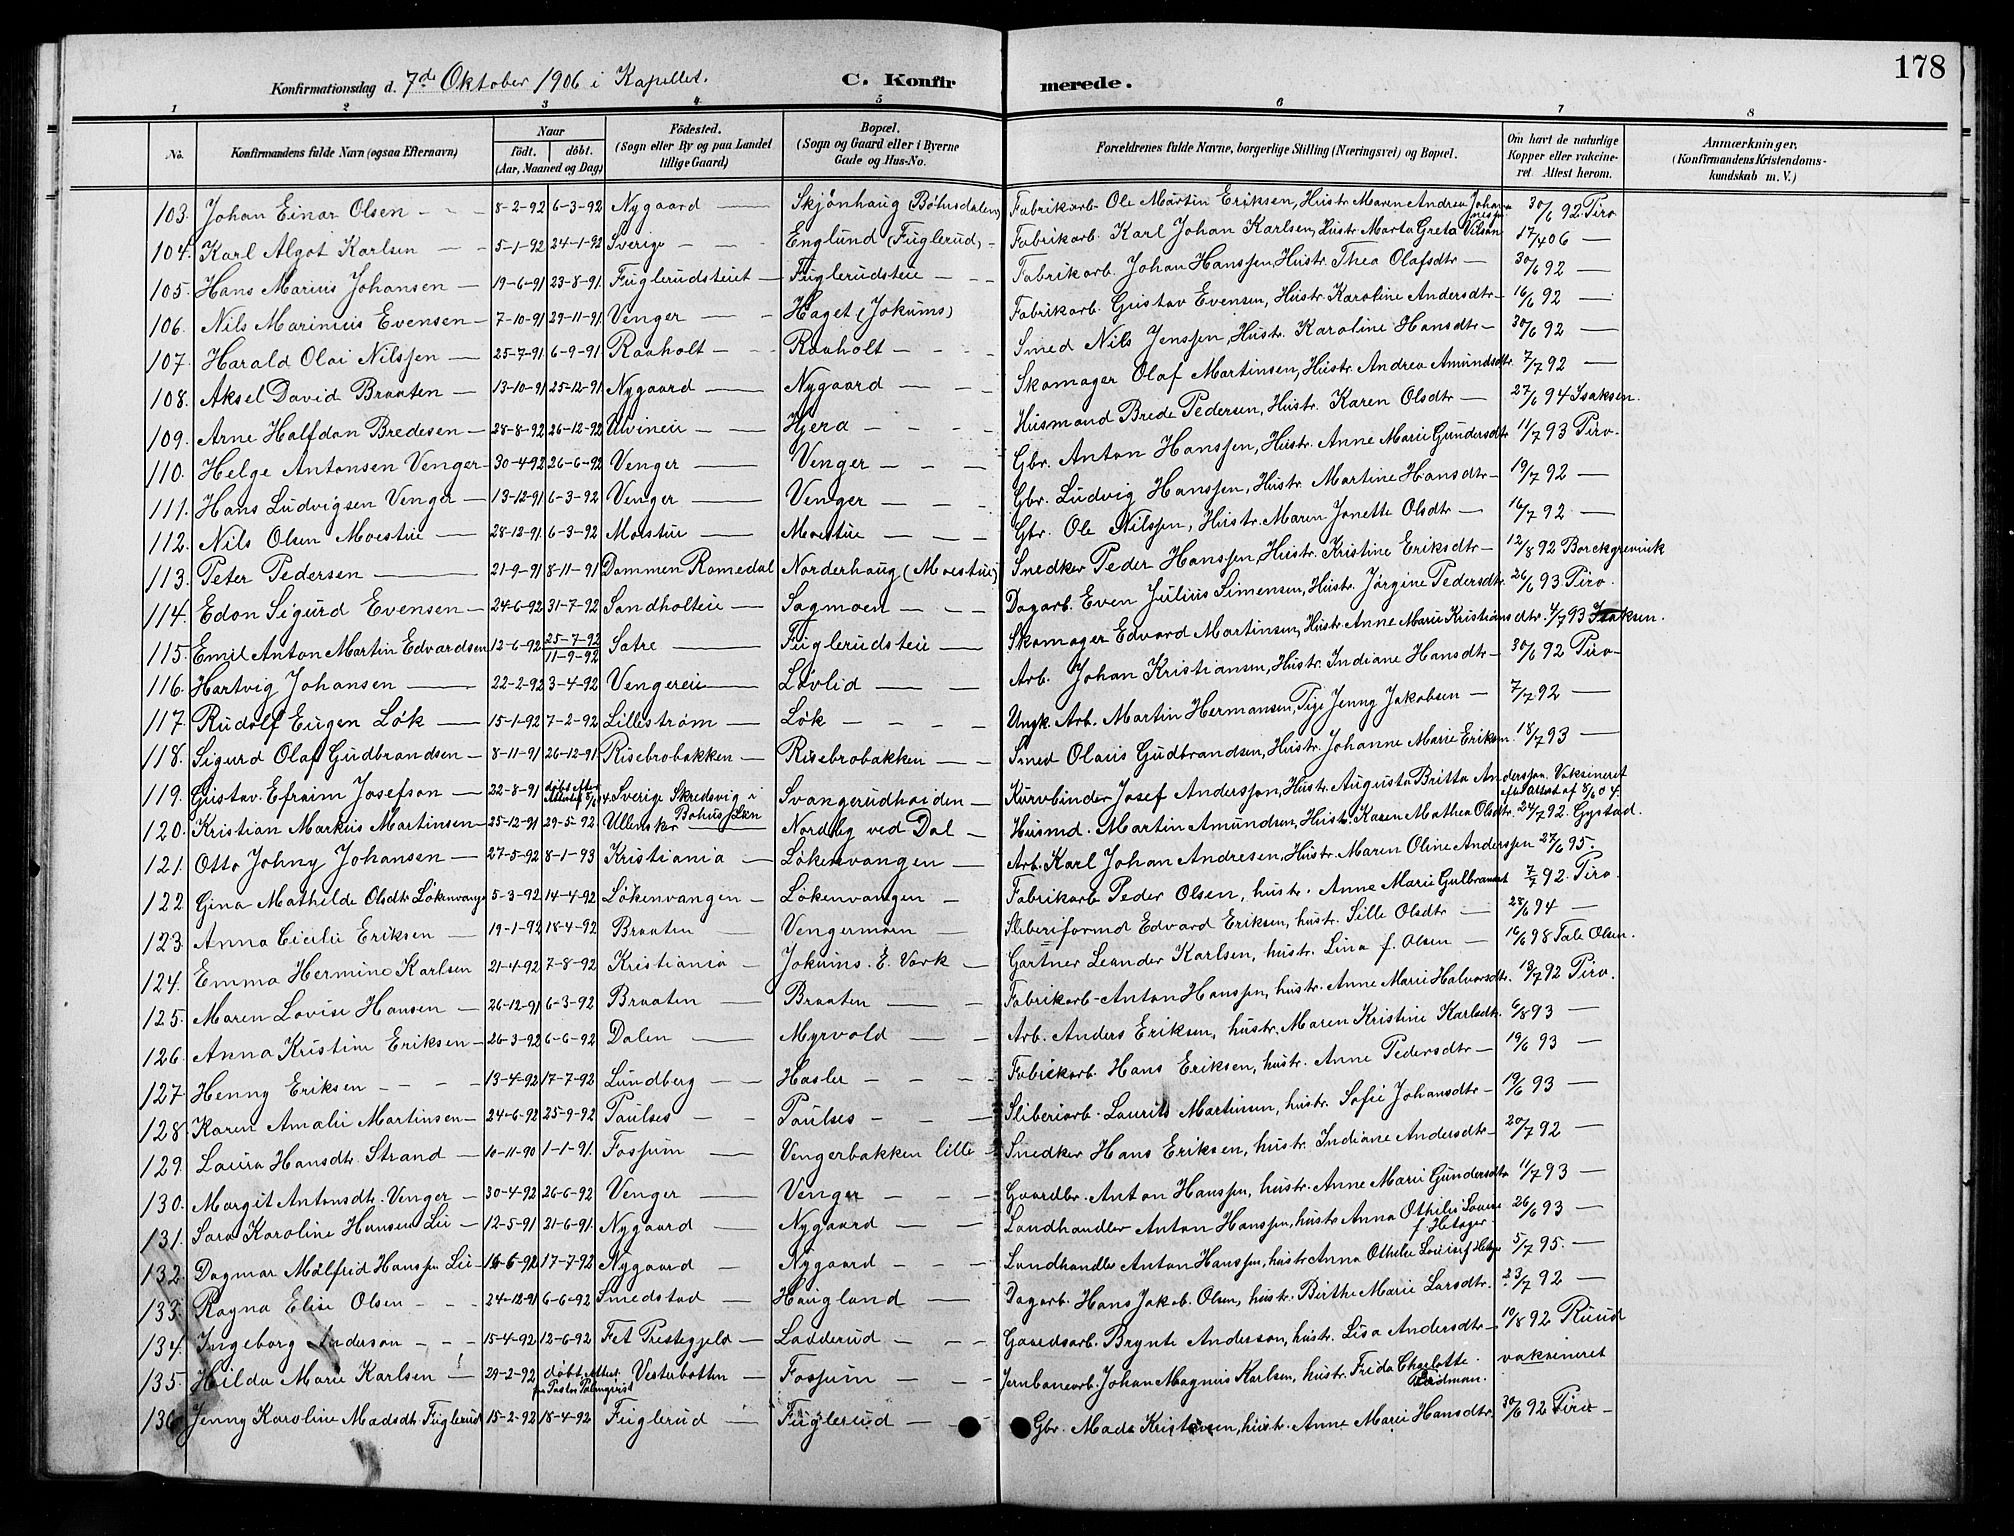 178
Konfirmationsdag d. 7de Oktober 1906 i Kapellet. C. Konfirmerede.
1 2 3 4 5 6 7 8
No. Konfirmandens fulde Navn (ogsaa Efternavn) Naar født. døbt. (Aar, Maaned og Dag) Fødested. (Sogn eller By og paa Landet tillige Gaard) Bopæl. (Sogn og Gaard eller i Byerne Gade og Hus-No. Forældrenes fulde Navne, borgerlige Stilling (Næringsvei) og Bopæl. Om havt de naturlige Kopper eller vakcineret Attest herom. Anmærkninger, (Konfirmandens Kristendomskundskab m. V.)
103. Johan Einar Olsen - 8-2-92 6-3-92 Nygaard — Skjønhaug Fabrikarb. Ole Martin Eriksen, Hustr. Maren Andrea 30/6 92 Piro
104. Karl Algot Karlsen - 5-1-92 24-1-92 Sverige - Englund (Fuglerud) - Fabrikarb. Karl Johan Karlsen, Hustr. Marta Greta 17/4 06 —
105. Hans Marius Johansen - 19-6-91 23-8-91 Fuglerudsteiet - Fuglerudsteie - Fabrikarb. Johan Hanssen, Hustr. Thea Olafsdtr — 30/6 92 —
106. Nils Marinius Evensen - 7-10-91 29-11-91 Venger — Haget (Jokums) Fabrikarb. Gustav Evensen, Hustr. Karoline Andersdtr - 16/6 92 —
107. Harald Olai Nilssen — 25-7-91 6-9-91 Raaholt - Raaholt - Smed Nils Jenssen, Hustr. Karoline Hansdtr - 30/6 92 —
108. Aksel David Braaten — 13-10-91 25-12-91 Nygaard — Nygaard - Skomager Olaf Martinsen, Hustr. Andrea Amundsdtr. 7/7 92 —
109. Arne Halfdan Bredesen - 28-8-92 26-12-92 - Hjera - Husmand Brede Pedersen, Hustr. Karen Olsdtr — 27/6 94 Isaksen.
110. Helge Antonsen Venger - 30-4-92 26-6-92 Venger — Venger - Gbr. Anton Hanssen, Hustr. Anne Marie Gundersdtr 11/7 93 Piro.
111. Hans Ludvigsen Venger — 13-12-91 6-3-92 Venger — Venger - Gbr. Ludvig Hanssen, Hustr. Martine Hansdtr - 19/7 92 —
112. Nils Olsen Moestue — 28-12-91 6-3-92 Moestue — Moestue - Gbr. Ole Nilssen, Hustr. Maren Jonette Olsdtr — 16/7 92 —
113. Peter Pedersen — 21-9-91 8-11-91 Dammen Romedal Norderhaug (Moestue) Snedker Peder Hanssen, Hustr. Kristine Eriksdtr - 12/8 92 Borckgrevink
114. Edon Sigurd Evensen - 24-6-92 31-7-92 Sandholteie — Sagmoen - Dagarb. Even Julius Simensen, Hustr. Jørgine Pedersdtr. 26/6 93 Piro.
115. Emil Anton Martin Edvardsen 12-6-92 25-7-92 11-9-92 Sætre — Fuglerudsteie — Skomager Edvard Martinsen, Hustr. Anne Marie Kristiansdtr. 4/7 93 Isaksen.
116. Hartvig Johansen — 22-2-92 3-4-92 Vengereie — Løvlid — Arb. Johan Kristiansen, Hustr. Indiane Hansdtr - 30/6 92 Piro -
117. Rudolf Eugen Løk — 15-1-92 7-2-92 Lillestrøm — Løk - Ungk. Arb. Martin Hermansen, Pige Jenny Jakobsen — 7/7 92 —
118. Sigurd Olaf Gudbrandsen - 8-11-91 26-12-91 Risebrobakken - Risebrobakken - Smed Olaus Gudbrandsen, Hustr. Johanne Marie Eriksen 18/7 93 —
119. Gustav Efraim Josefson - 22-8-91 døbt efter Sverige Skredsvig i Bohus Län Svangerudheiden - Kurvbinder Josef Andersson, Hustr. Augusta Britta Andersson. Vaksineret
120. Kristian Markus Martinsen - 25-12-91 29-5-92 Ullensker — Nordby ved Dal - Husmd. Martin Amundsen, Hustr. Karen Mathea Olsdtr. 24/7 92. Gystad.
121. Otto Johny Johansen — 27-5-92 8-1-93 Kristiania - Løkenvangen — Arb. Karl Johan Andresen, Hustr. Maren Oline Anderssen 27/6 95.
122. Gina Mathilde Olsdtr Løkenvangen 5-3-92 14-4-92 Løkenvangen - Løkenvangen - Fabrikarb. Peder Olsen, hustr. Anne Marie 7/7 92. Piro.
123. Anna Cicilie Eriksen — 19-1-92 18-4-92 Braaten — Vengermoen — Sliberiformd Edvard Eriksen, hustr. Sille Olsdtr — 28/6 94 —
124. Emma Hermine Karlsen 21-4-92 7-8-92 Kristiania - Jokums. E. Værk - Gartner Leander Karlsen, hustr. Lina f. Olsen — 16/6 98 Olsen.
125. Maren Lovise Hansen — 26-12-91 6-3-92 Braaten — Braaten — Fabrikarb- Anton Hanssen, hustr. Anne Marie Halvorsdtr. 13/7 92 Piro.
126. Anna Kristine Eriksen - 26-3-92 6-6-92 Dalen — Myrvold — Arb. Anders Eriksen, hustr. Maren Kristine Karlsdtr. 6/8 93 —
127. Henny Eriksen - 13-4-92 17-7-92 Lundberg — Hasler - Fabrikarb. Hans Eriksen, hustr. Anne Pedersdtr — 19/6 93 —
128. Karen Amalie Martinsen - 24-6-92 25-9-92 Paulses - Paulses - Sliberiarb. Laurits Martinsen, hustr. Sofie Johansdtr - 19/6 93 —
129. Laura Hansdtr. Strand — 10-11-90 1-1-91. Fossum — Vengerbakken lille - Snedker Hans Eriksen, hustr. Indiane Andersdtr - 20/7 92 —
130. Margit Antonsdtr. Venger - 30-4-92 26-6-92 Venger — Venger - Gaardbr. Anton Hanssen, hustr. Anne Marie Gundersdtr 11/7 93 —
131. Sara Karoline Hansen Lie — 12-5-91 21-6-91. Nygaard — Nygaard - Landhandler Anton Hanssen, hustr. Anna Othilie Lovise f. Hetager 26/6 93 —
132. Dagmar Målfrid Hanssen Lie - 16-6-92 17-7-92 Nygaard — Nygaard - Landhandler Anton Hanssen, hustr Anna Othilie 5/7 95. —
133. Ragna Elise Olsen - 24-12-91 6-6-92 Smedstad — Haugland — Dagarb. Hans Jakob Olsen, hustr. Birthe Marie Larsdtr. 23/7 92 —
134. Ingeborg Anderson - 15-4-92 12-6-92 Fet Prestegjeld — Ladderud - Gaardsarb. Brynte Andersson, hustr. Lisa Andersdtr - 19/8 92 Ruud
135. Hilda Marie Karlsen - 29-2-92 døbt Attest fra Pastor Palmqvist Vesterbotten - Fossum - Jernbanearb. Johan Magnus Karlsen, hustr. Frida Charlotte vaksineret
136. Jenny Karoline Madsdtr Fuglerud 15-2-92 18-4-92 Fuglerud — Fuglerud - Gbr. Mads Kristensen, hustr. Anne Marie Hansdtr. 30/6 92 Piro -